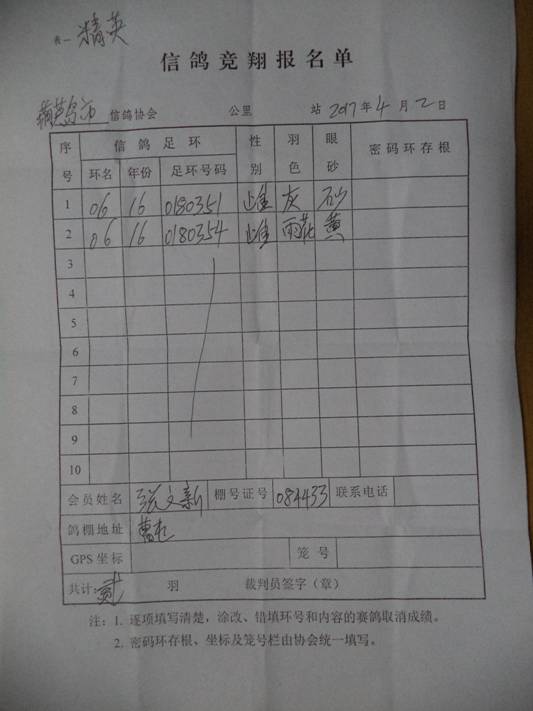 表一 精英
信鸽竞翔报名单
葫芦岛市 信鸽协会 公里 站 2017年4月2日
序号 信鸽足环 性别 羽色 眼砂 密码环存根
环名 年份 足环号码
1 06 16 0180351 雌 灰 砂
2 06 16 0180354 雌 雨花 黄
3
4
5
6
7
8
9
10
会员姓名 张文新 棚号证号 084433 联系电话
鸽棚地址
GPS坐标 笼号
共计: 贰 羽 裁判员签字(章)
注: 1. 逐项填写清楚,涂改、错填环号和内容的赛鸽取消成绩。
2. 密码环存根、坐标及笼号栏由协会统一填写。